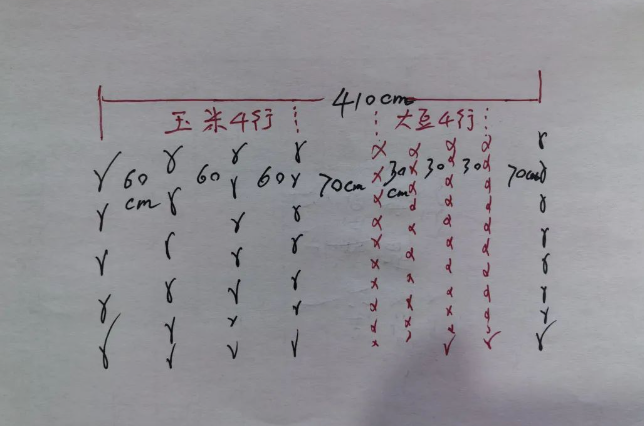 410cm
玉米4行 大豆4行
60cm 60 60 70cm 30cm 30 30 70cm